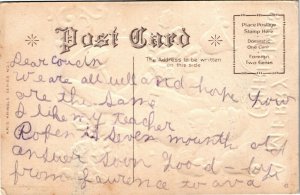 Post Card
Place Postage
Stamp Here
Domestic
One Cent
Foreign
Two Cents
The Address to be written
on this side
Dear Cousin
We are all well and hope you
are the same
I like my teacher
is seven mounth old
answer soon Good - by
from Lawrence to